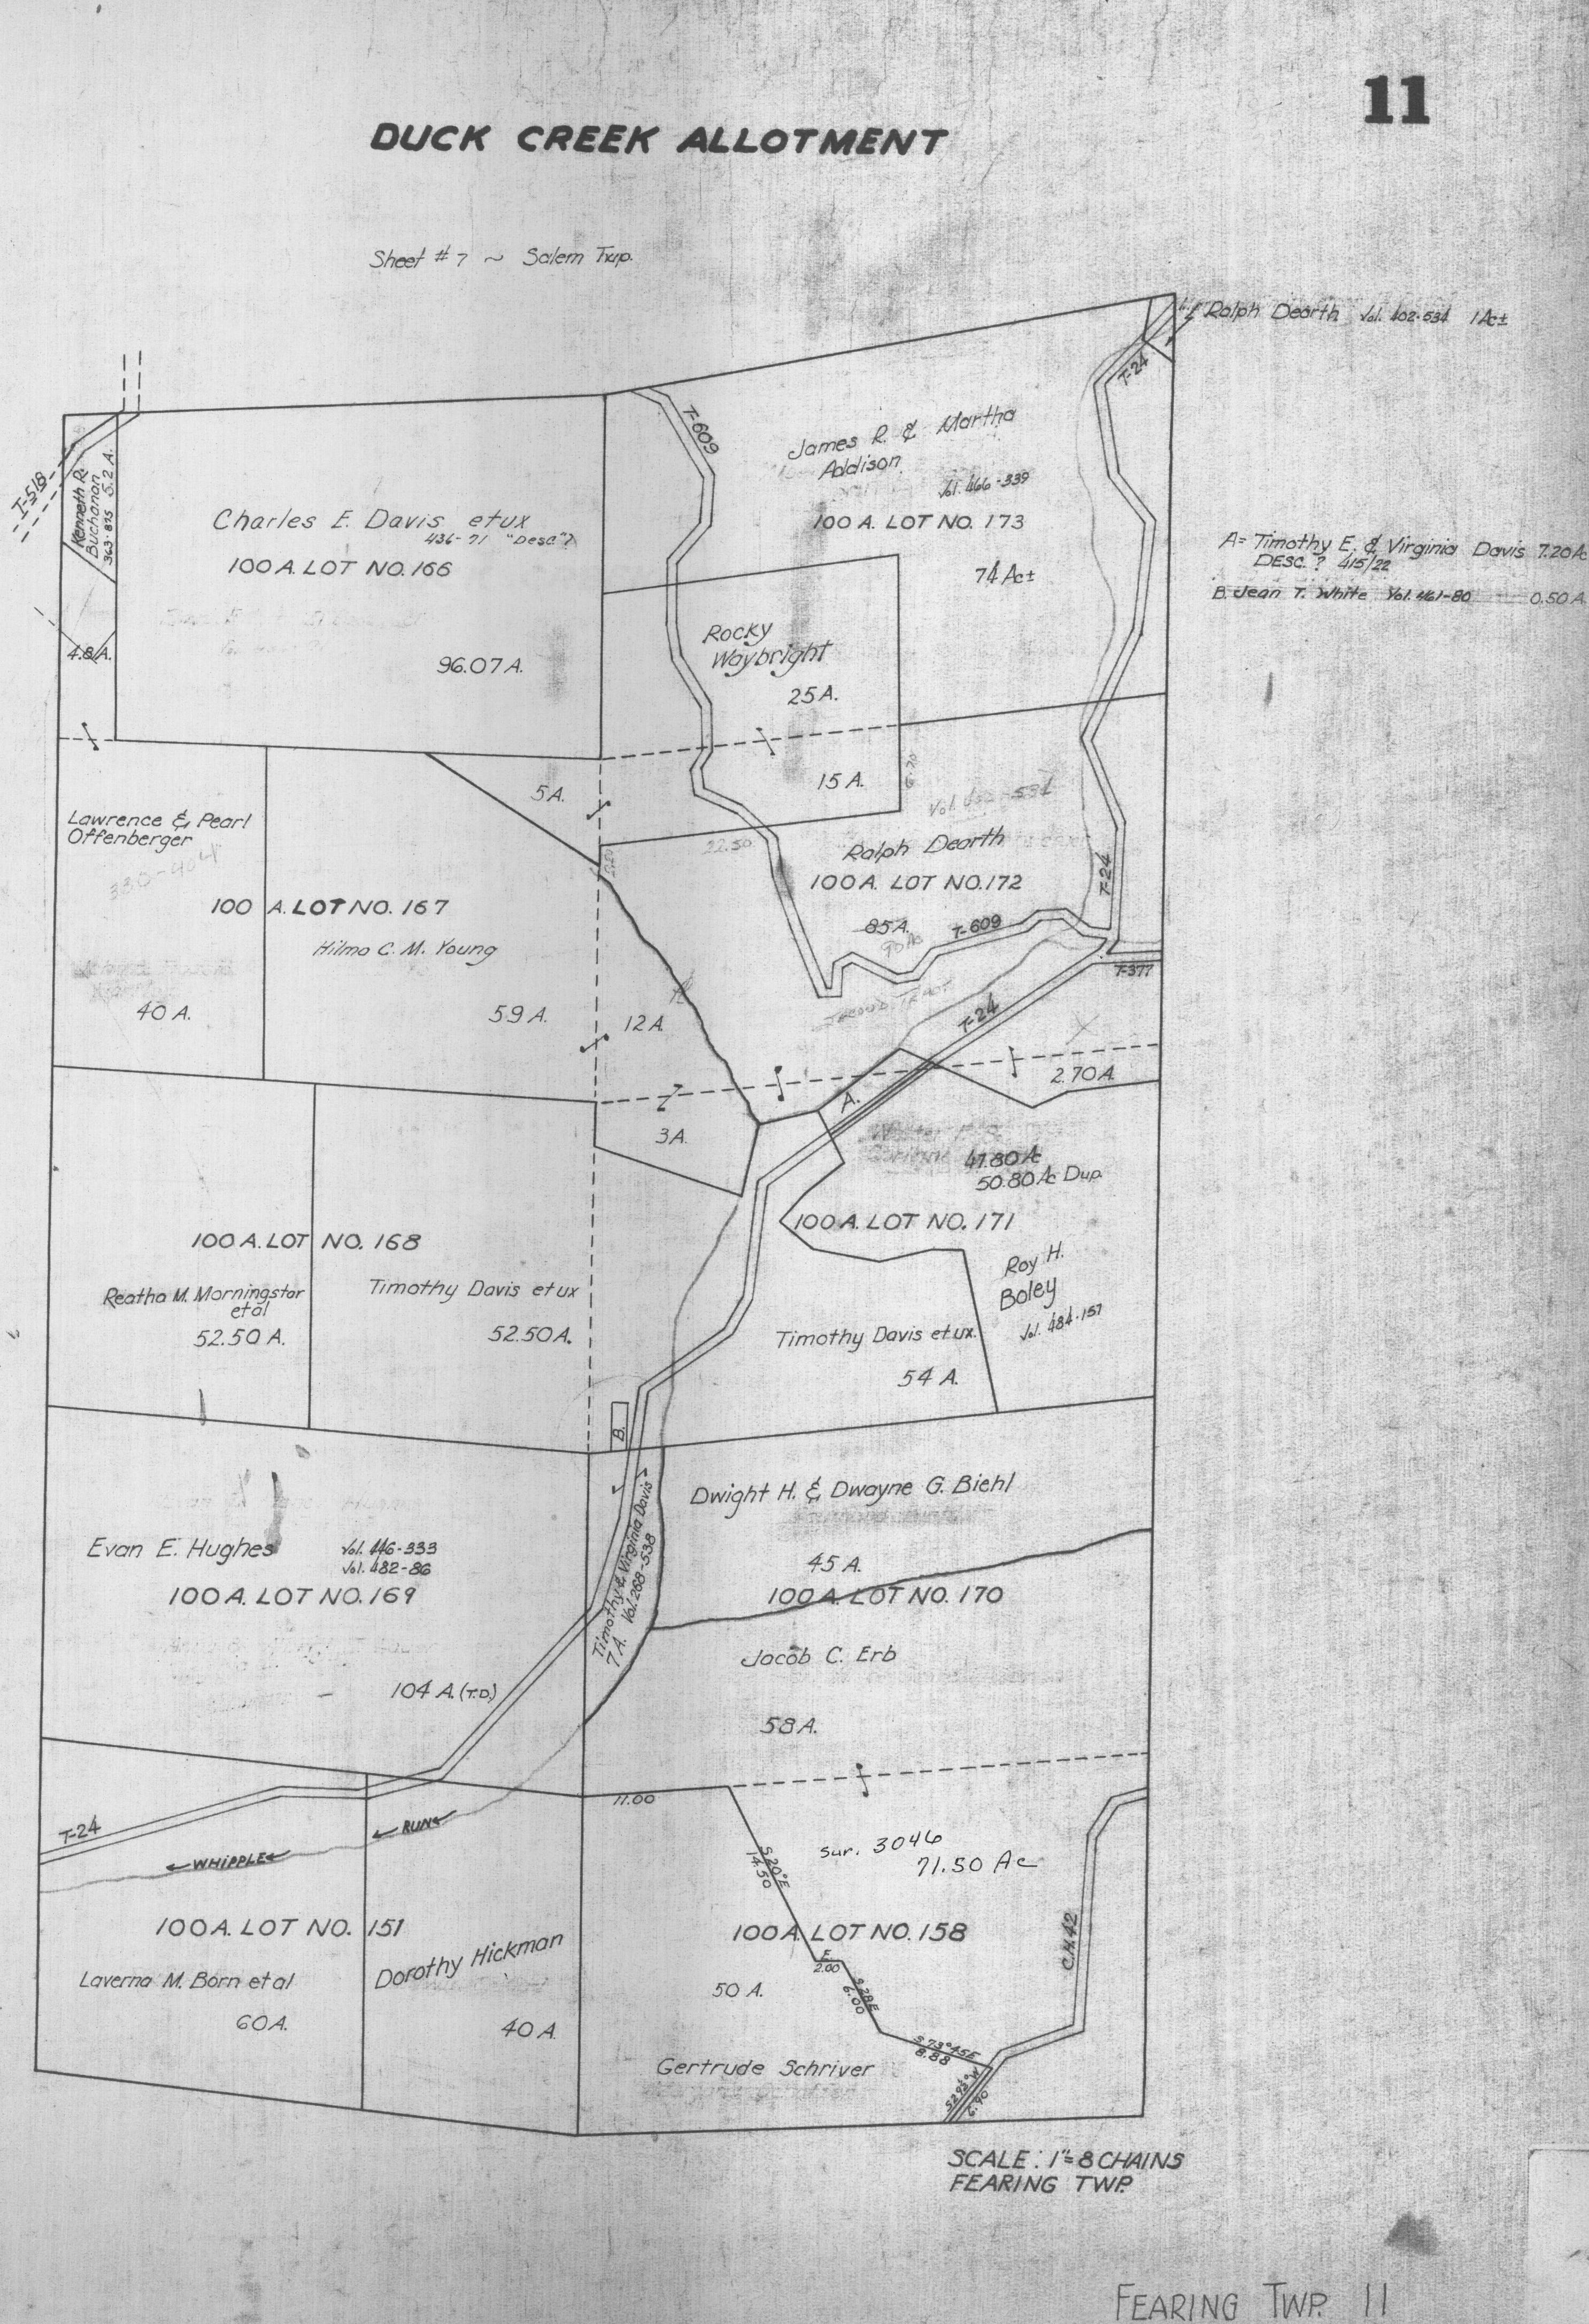 11
DUCK CREEK ALLOTMENT
Sheet # 7 ~ Salem Twp.
Ralph Dearth Vol. 402-534 1 Ac±
T-24
T-609
James R. & Martha
Addison
Vol. 466-339
100 A. LOT NO. 173
74 Ac±
T-518
Kenneth R.
Buchanan
363-875 5.2 A.
Charles E. Davis etux
436-71 "Desc"?
100 A. LOT NO. 166
96.07 A.
4.8 A.
A= Timothy E. & Virginia Davis 7.20 Ac
DESC. ? 415/22
B. Jean T. White Vol. 461-80 0.50 A.
Rocky
Waybright
25 A.
15 A.
5 A.
22.50
Ralph Dearth
100 A. LOT NO. 172
85 A.
T-609
T-24
T-377
T-24
Lawrence & Pearl
Offenberger
330-404
100 A. LOT NO. 167
Hilma C. M. Young
40 A.
59 A.
12 A.
2.70 A.
A.
3 A.
47.80 Ac
50.80 Ac Dup.
100 A. LOT NO. 171
Roy H.
Boley
Vol. 484-157
100 A. LOT NO. 168
Reatha M. Morningstar
etal
52.50 A.
Timothy Davis etux
52.50 A.
Timothy Davis etux.
54 A.
B.
Timothy & Virginia Davis
7 A. Vol. 268-538
Dwight H. & Dwayne G. Biehl
45 A.
100 A. LOT NO. 170
Evan E. Hughes
Vol. 446-333
Vol. 482-86
100 A. LOT NO. 169
104 A. (T.D.)
Jacob C. Erb
58 A.
11.00
T-24
WHIPPLE
RUN
S 20° E
14.50
Sur. 3046
71.50 Ac
100 A. LOT NO. 151
Laverna M. Born etal
60 A.
Dorothy Hickman
40 A.
100 A. LOT NO. 158
E.
2.00
S 28 E
6.00
C.H. 42
50 A.
S 73° 45 E
8.88
Gertrude Schriver
6.90
SCALE : 1"= 8 CHAINS
FEARING TWP.
FEARING TWP. 11